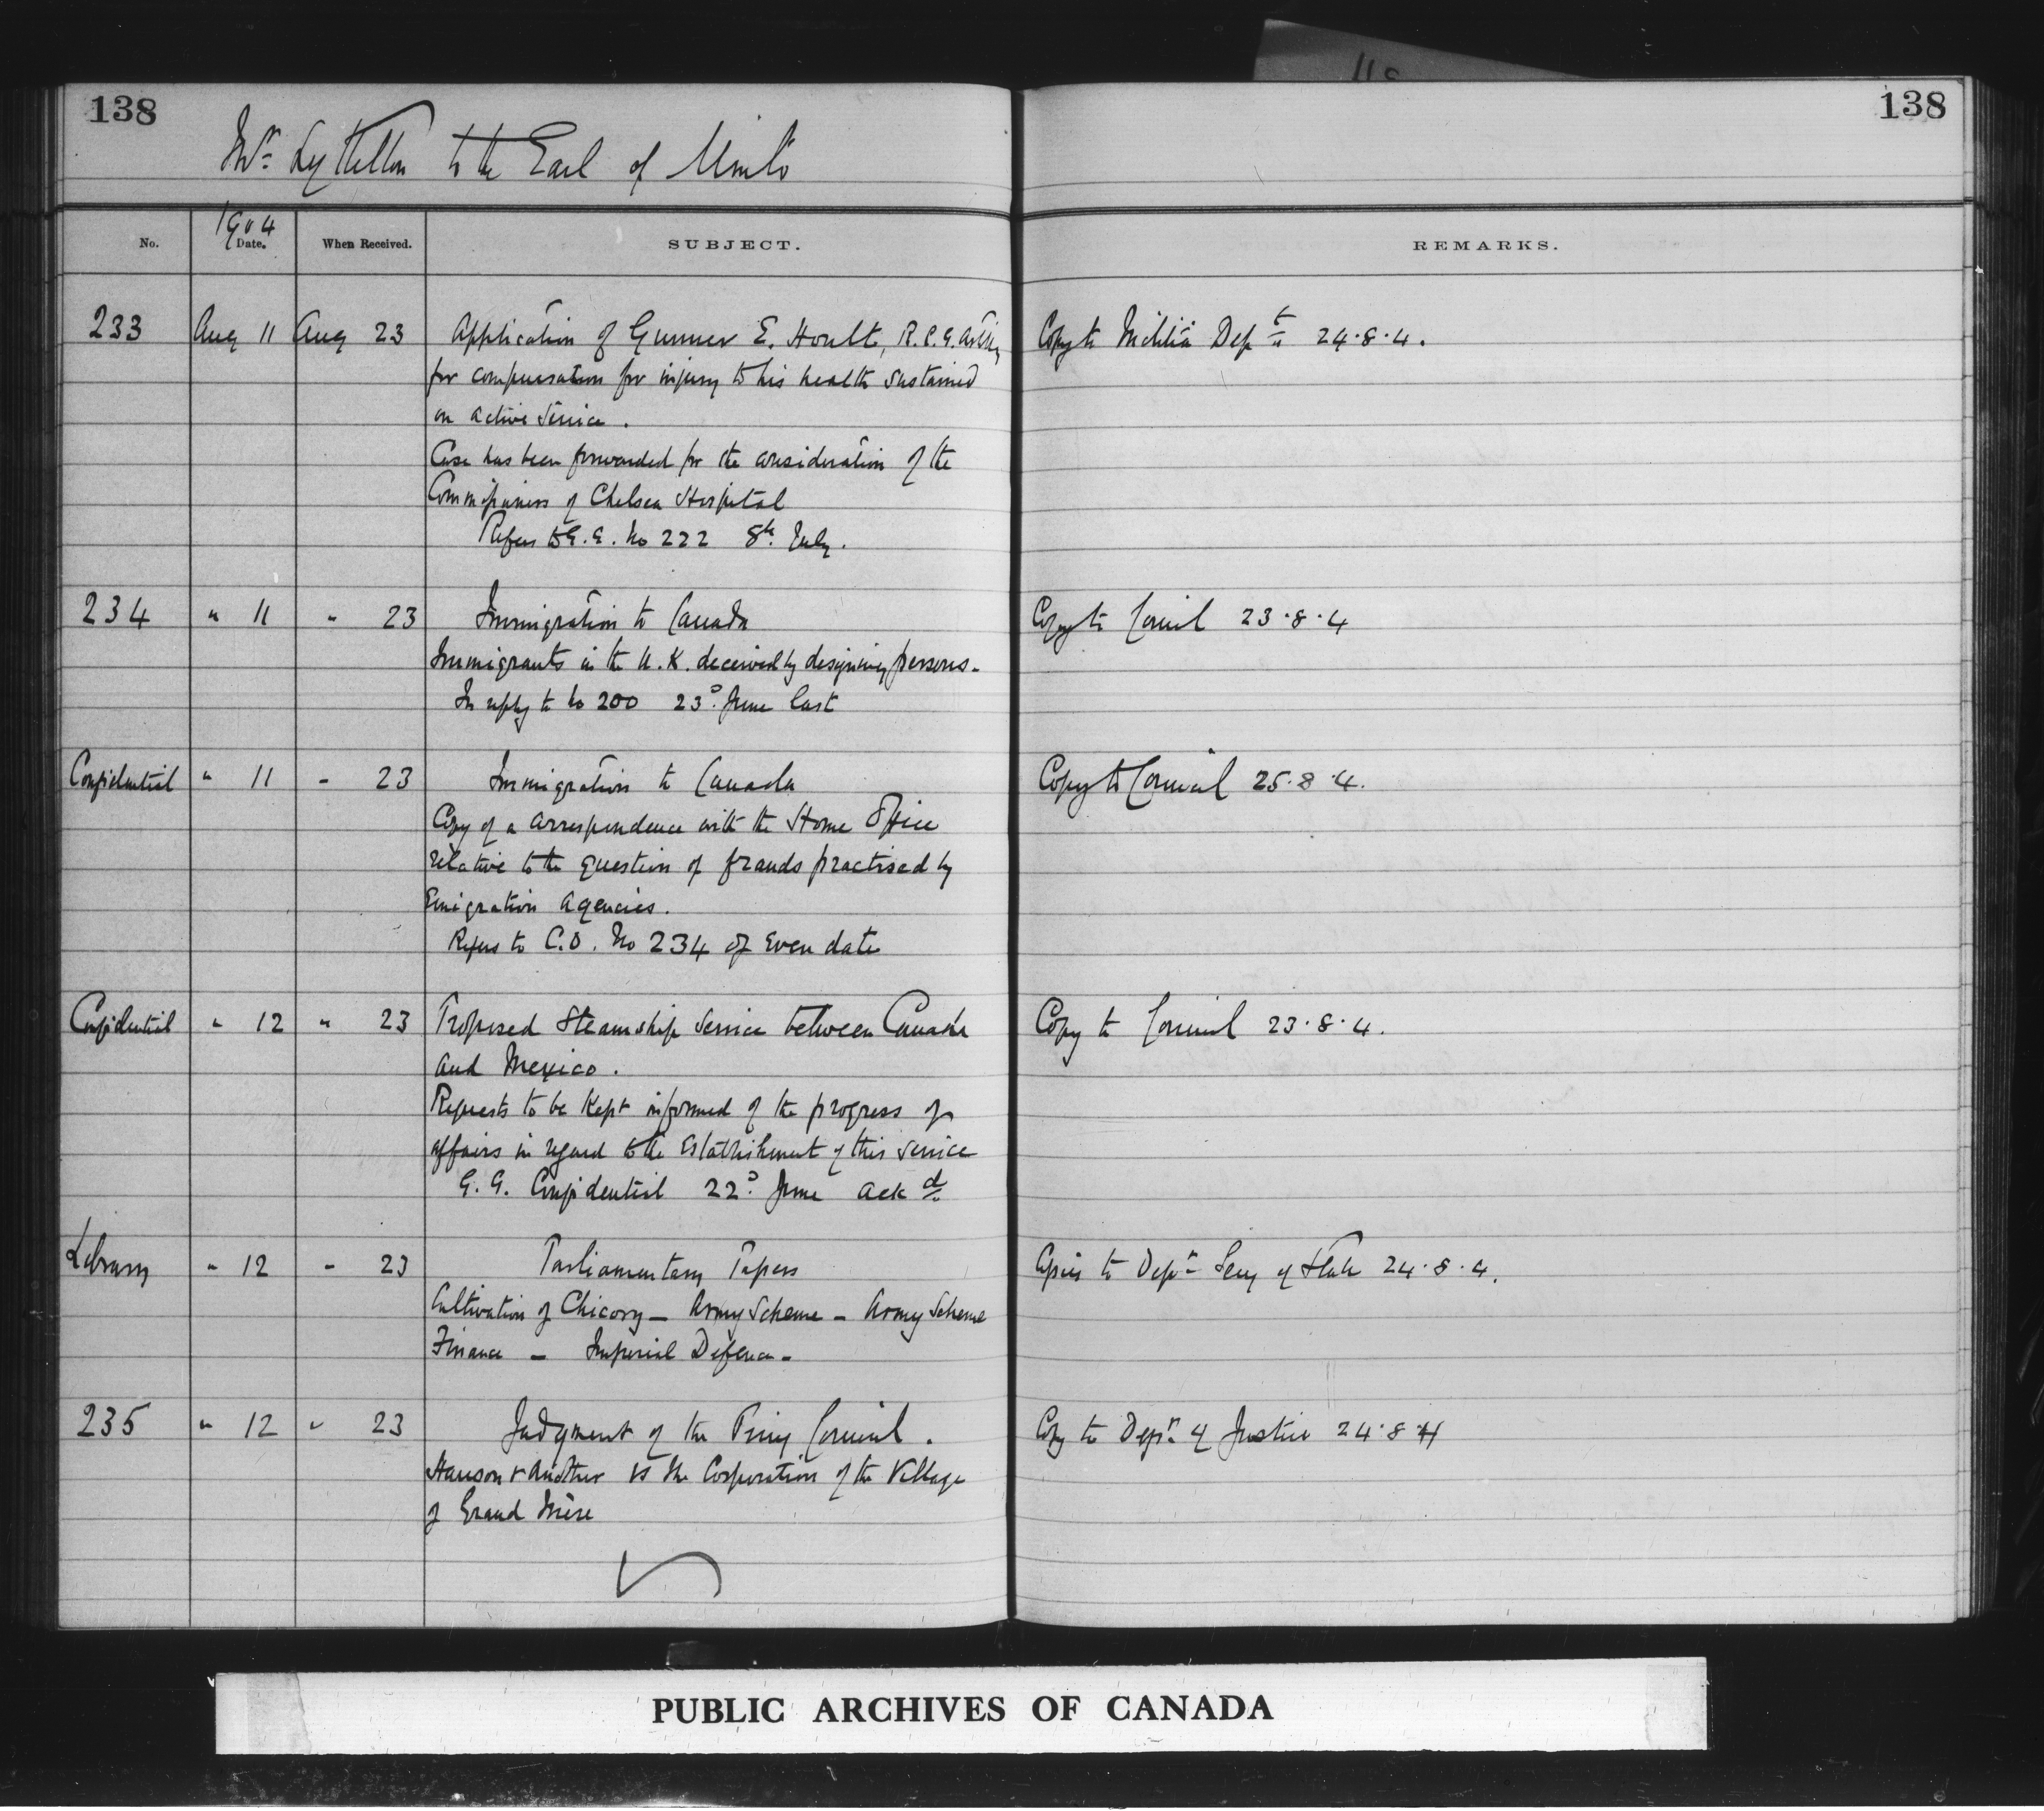 138
138
Mr. Lyttelton to the Earl of Minto
No.
1904
Date.
When Received.
SUBJECT.
REMARKS.
233 Aug 11 Aug 23 Application of Gunner E. Hoult, R.C.G. Arty Copy to Militia Dept 24.8.4.
for compensation for injury to his health sustained
on active service.
Case has been forwarded for the consideration of the
Commissioners of Chelsea Hospital
Refers to G.G. No 222 8th July.
234 " 11 " 23 Immigration to Canada Copy to Council 23.8.4
Immigrants in the U.K. deceived by designing persons.
In reply to No 200 23d June last
Confidential " 11 " 23 Immigration to Canada Copy to Council 25.8.4.
Copy of a correspondence with the Home Office
relative to the question of frauds practised by
Emigration Agencies.
Refers to C.O. No 234 of even date
Confidential " 12 " 23 Proposed Steamship Service between Canada Copy to Council 23.8.4.
and Mexico.
Requests to be kept informed of the progress of
affairs in regard to the establishment of this service
G.G. Confidential 22d June ackd.
Library " 12 " 23 Parliamentary Papers Copies to Dept Secy of State 24.8.4.
Cultivation of Chicory – Army Scheme – Army Scheme
Finance – Imperial Defence –
235 " 12 " 23 Judgment of the Privy Council. Copy to Dept of Justice 24.8.4
Hanson & Another vs The Corporation of the Village
of Grand Mère
PUBLIC ARCHIVES OF CANADA